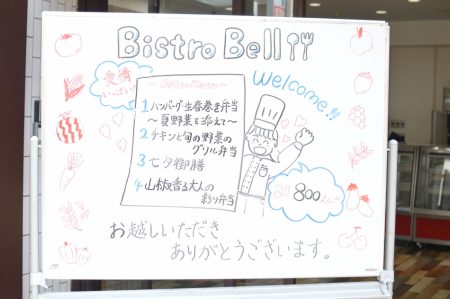 Bistro Bell
愛情
いっぱい!
Welcome!!
Bistro Menu
1 ハンバーグ生春巻き弁当
~夏野菜を添えて~
2 チキンと旬の野菜の
グリル弁当
3 七夕御膳
4 山椒香る大人の
彩り弁当
800
お越しいただき
ありがとうございます。